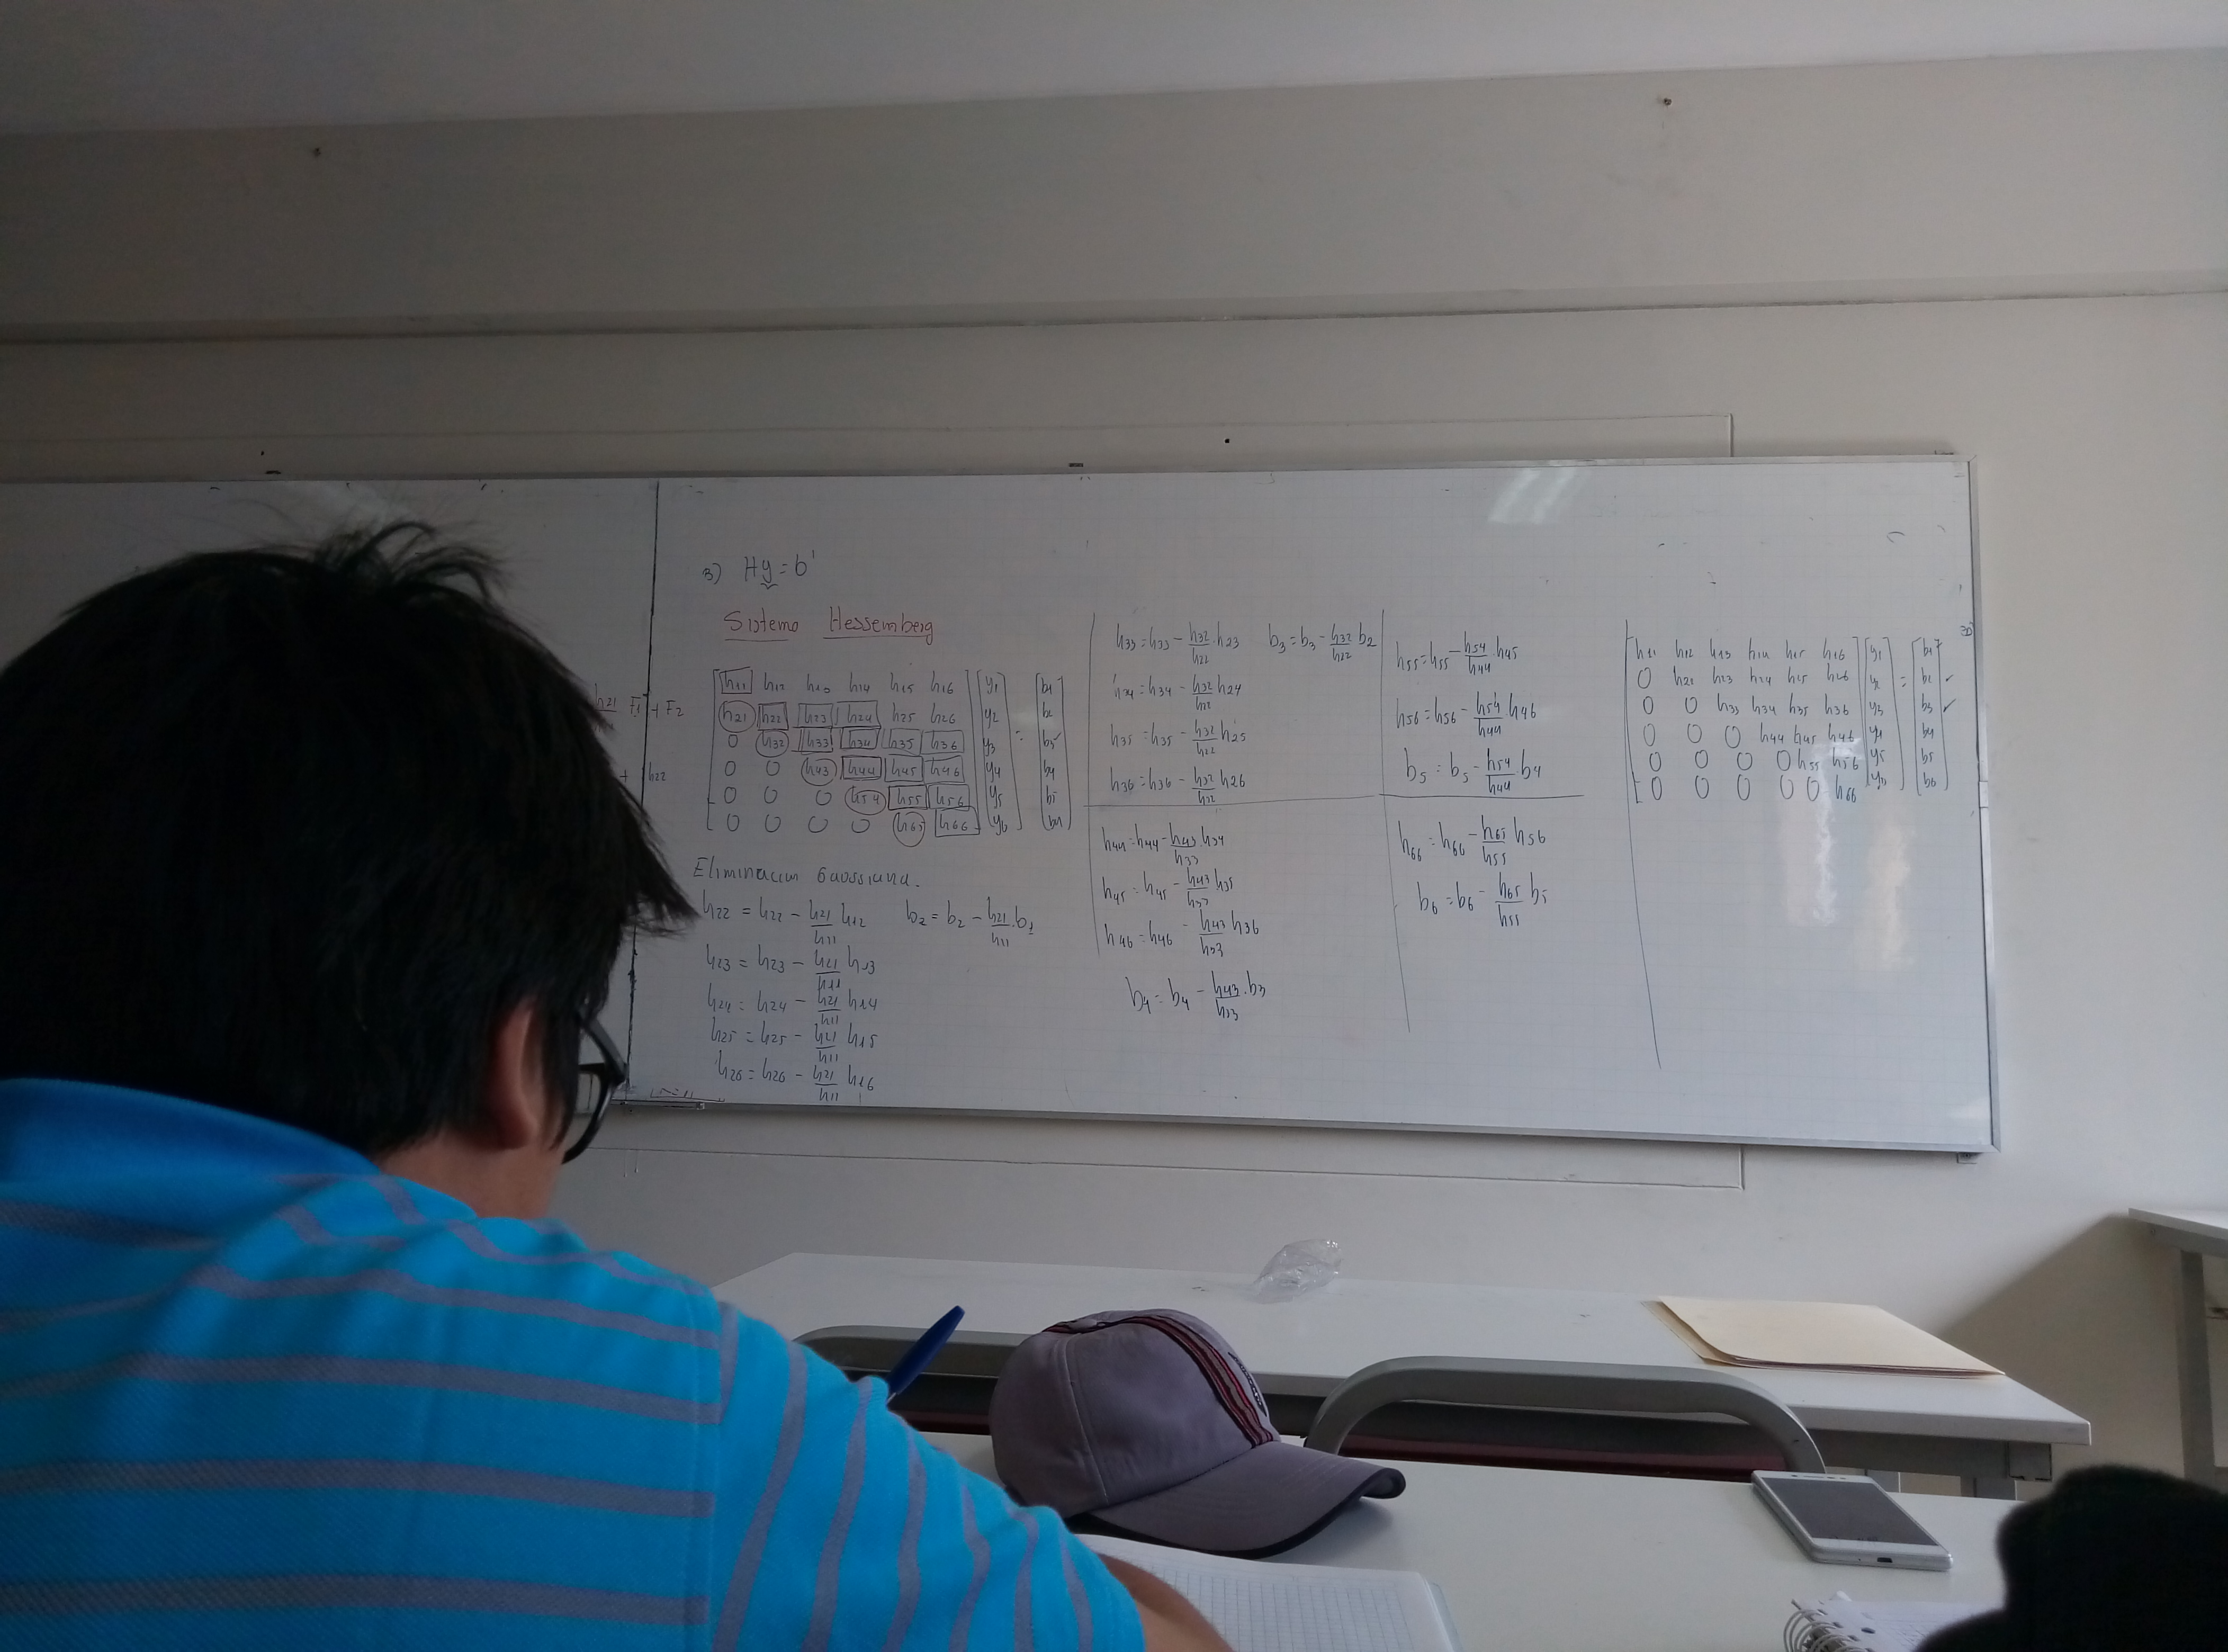 h21 F1 + F2
+ h22
3) Hy = b'
Sistema Hessemberg
h11 h12 h13 h14 h15 h16 y1 b1
h21 h22 h23 h24 h25 h26 y2 = b2
0 h32 h33 h34 h35 h36 y3 b3
0 0 h43 h44 h45 h46 y4 b4
0 0 0 h54 h55 h56 y5 b5
0 0 0 0 h65 h66 y6
Eliminacion Gaussiana.
h22 = h22 - h21/h11 h12 b2 = b2 - h21/h11 . b1
h23 = h23 - h21/h11 h13
h24 = h24 - h21/h11 h14
h25 = h25 - h21/h11 h15
h26 = h26 - h21/h11 h16
h33 = h33 - h32/h22 . h23 b3 = b3 - h32/h22 b2
h34 = h34 - h32/h22 h24
h35 = h35 - h32/h22 h25
h36 = h36 - h32/h22 h26
h44 = h44 - h43/h33 . h34
h45 = h45 - h43/h33 h35
h46 = h46 - h43/h33 h36
b4 = b4 - h43/h33 . b3
h55 = h55 - h54/h44 . h45
h56 = h56 - h54/h44 h46
b5 = b5 - h54/h44 . b4
h66 = h66 - h65/h55 h56
b6 = b6 - h65/h55 b5
h11 h12 h13 h14 h15 h16 y1 b1
0 h22 h23 h24 h25 h26 y2 = b2
0 0 h33 h34 h35 h36 y3 b3
0 0 0 h44 h45 h46 y4 b4
0 0 0 0 h55 h56 y5 b5
0 0 0 0 0 h66 y6 b6